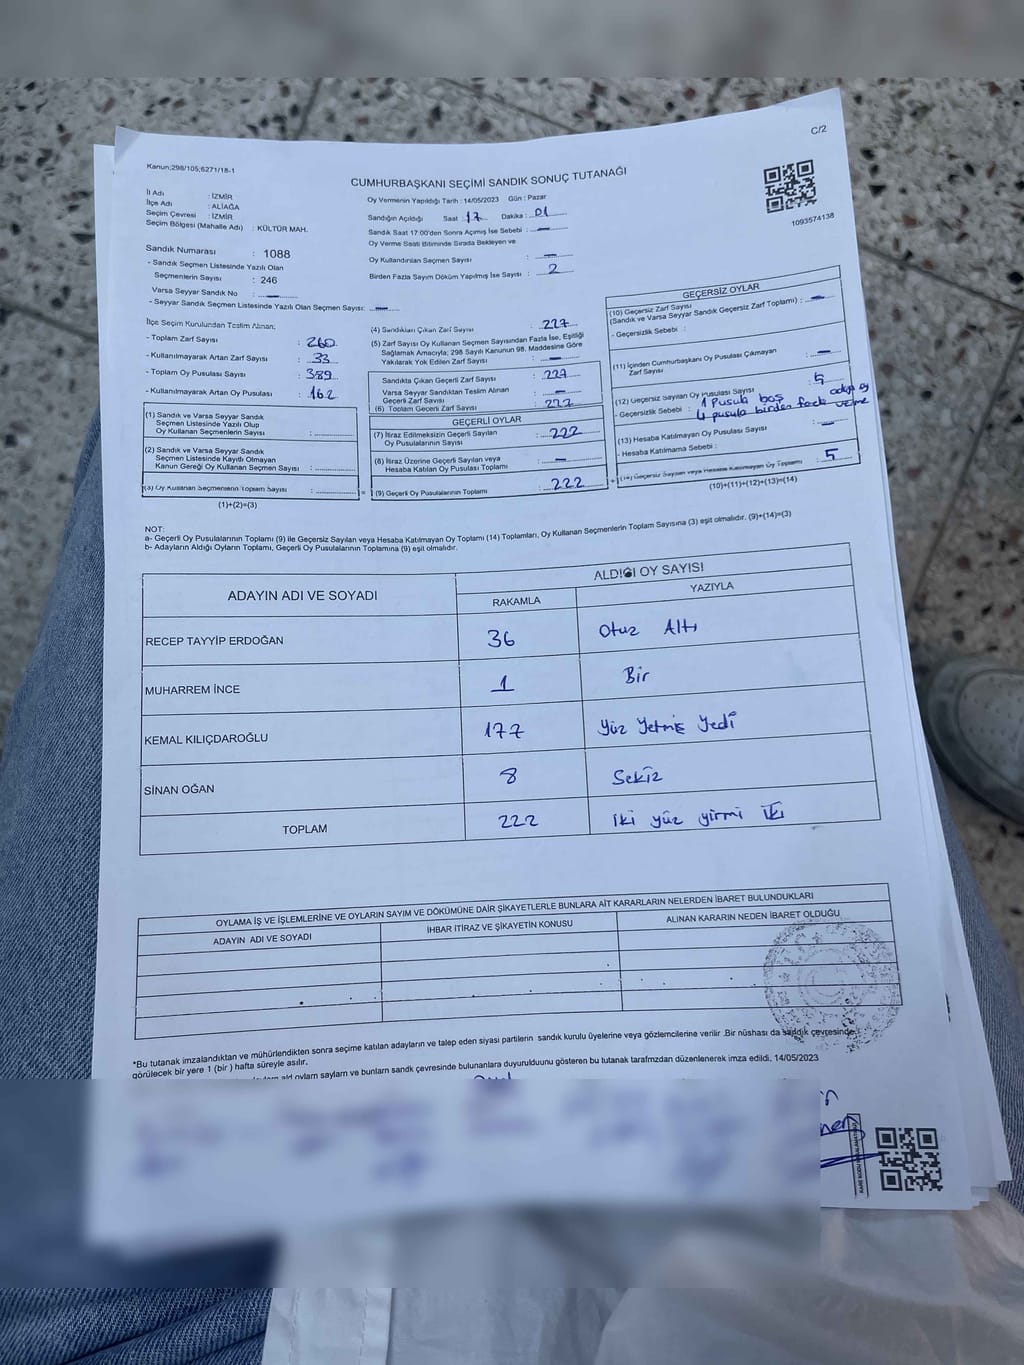 C/2
Kanun;298/105;6271/18-1
CUMHURBAŞKANI SEÇİMİ SANDIK SONUÇ TUTANAĞI
1093574138
İl Adı : İZMİR
İlçe Adı : ALİAĞA
Seçim Çevresi : İZMİR
Seçim Bölgesi (Mahalle Adı) : KÜLTÜR MAH.
Sandık Numarası : 1088
- Sandık Seçmen Listesinde Yazılı Olan
Seçmenlerin Sayısı : 246
Varsa Seyyar Sandık No : —
- Seyyar Sandık Seçmen Listesinde Yazılı Olan Seçmen Sayısı: —
Oy Vermenin Yapıldığı Tarih : 14/05/2023 Gün : Pazar
Sandığın Açıldığı Saat : 17 Dakika : 01
Sandık Saat 17:00'den Sonra Açılmış İse Sebebi : —
Oy Verme Saati Bitiminde Sırada Bekleyen ve
Oy Kullandırılan Seçmen Sayısı : —
Birden Fazla Sayım Döküm Yapılmış İse Sayısı : 2
İlçe Seçim Kurulundan Teslim Alınan;
- Toplam Zarf Sayısı : 260
- Kullanılmayarak Artan Zarf Sayısı : 33
- Toplam Oy Pusulası Sayısı : 389
- Kullanılmayarak Artan Oy Pusulası : 162
(1) Sandık ve Varsa Seyyar Sandık
Seçmen Listesinde Yazılı Olup
Oy Kullanan Seçmenlerin Sayısı :
(2) Sandık ve Varsa Seyyar Sandık
Seçmen Listesinde Kayıtlı Olmayan
Kanun Gereği Oy Kullanan Seçmen Sayısı :
(3) Oy Kullanan Seçmenlerin Toplam Sayısı :
(1)+(2)=(3)
(4) Sandıktan Çıkan Zarf Sayısı : 227
(5) Zarf Sayısı Oy Kullanan Seçmen Sayısından Fazla İse, Eşitliği
Sağlamak Amacıyla; 298 Sayılı Kanunun 98. Maddesine Göre
Yakılarak Yok Edilen Zarf Sayısı : —
Sandıkta Çıkan Geçerli Zarf Sayısı : 227
Varsa Seyyar Sandıktan Teslim Alınan
Geçerli Zarf Sayısı : —
(6) Toplam Geçerli Zarf Sayısı : 227
GEÇERLİ OYLAR
(7) İtiraz Edilmeksizin Geçerli Sayılan
Oy Pusulalarının Sayısı : 222
(8) İtiraz Üzerine Geçerli Sayılan veya
Hesaba Katılan Oy Pusulası Toplamı : —
(9) Geçerli Oy Pusulalarının Toplamı : 222
GEÇERSİZ OYLAR
(10) Geçersiz Zarf Sayısı
(Sandık ve Varsa Seyyar Sandık Geçersiz Zarf Toplamı) : —
- Geçersizlik Sebebi :
(11) İçinden Cumhurbaşkanı Oy Pusulası Çıkmayan
Zarf Sayısı : —
(12) Geçersiz Sayılan Oy Pusulası Sayısı : 5
- Geçersiz Sebebi : 1 Pusula boş
4 pusula birden fazla adaya oy verme
(13) Hesaba Katılmayan Oy Pusulası Sayısı : —
- Hesaba Katılmama Sebebi :
(14) Geçersiz Sayılan veya Hesaba Katılmayan Oy Toplamı : 5
(10)+(11)+(12)+(13)=(14)
NOT:
a- Geçerli Oy Pusulalarının Toplamı (9) ile Geçersiz Sayılan veya Hesaba Katılmayan Oy Toplamı (14) Toplamları, Oy Kullanan Seçmenlerin Toplam Sayısına (3) eşit olmalıdır. (9)+(14)=(3)
b- Adayların Aldığı Oyların Toplamı, Geçerli Oy Pusulalarının Toplamına (9) eşit olmalıdır.
ADAYIN ADI VE SOYADI ALDIĞI OY SAYISI
RAKAMLA YAZIYLA
RECEP TAYYİP ERDOĞAN 36 Otuz Altı
MUHARREM İNCE 1 Bir
KEMAL KILIÇDAROĞLU 177 Yüz Yetmiş Yedi
SİNAN OĞAN 8 Sekiz
TOPLAM 222 İki yüz yirmi iki
OYLAMA İŞ VE İŞLEMLERİNE VE OYLARIN SAYIM VE DÖKÜMÜNE DAİR ŞİKAYETLERLE BUNLARA AİT KARARLARIN NELERDEN İBARET BULUNDUKLARI
ADAYIN ADI VE SOYADI İHBAR İTİRAZ VE ŞİKAYETİN KONUSU ALINAN KARARIN NEDEN İBARET OLDUĞU
*Bu tutanak imzalandıktan ve mühürlendikten sonra seçime katılan adayların ve talep eden siyasi partilerin sandık kurulu üyelerine veya gözlemcilerine verilir .Bir nüshası da sandık çevresinde,
görülecek bir yere 1 (bir ) hafta süreyle asılır.
oyların sayların ve bunların sandk çevresinde bulunanlara duyurulduunu gösteren bu tutanak tarafmzdan düzenlenerek imza edildi. 14/05/2023